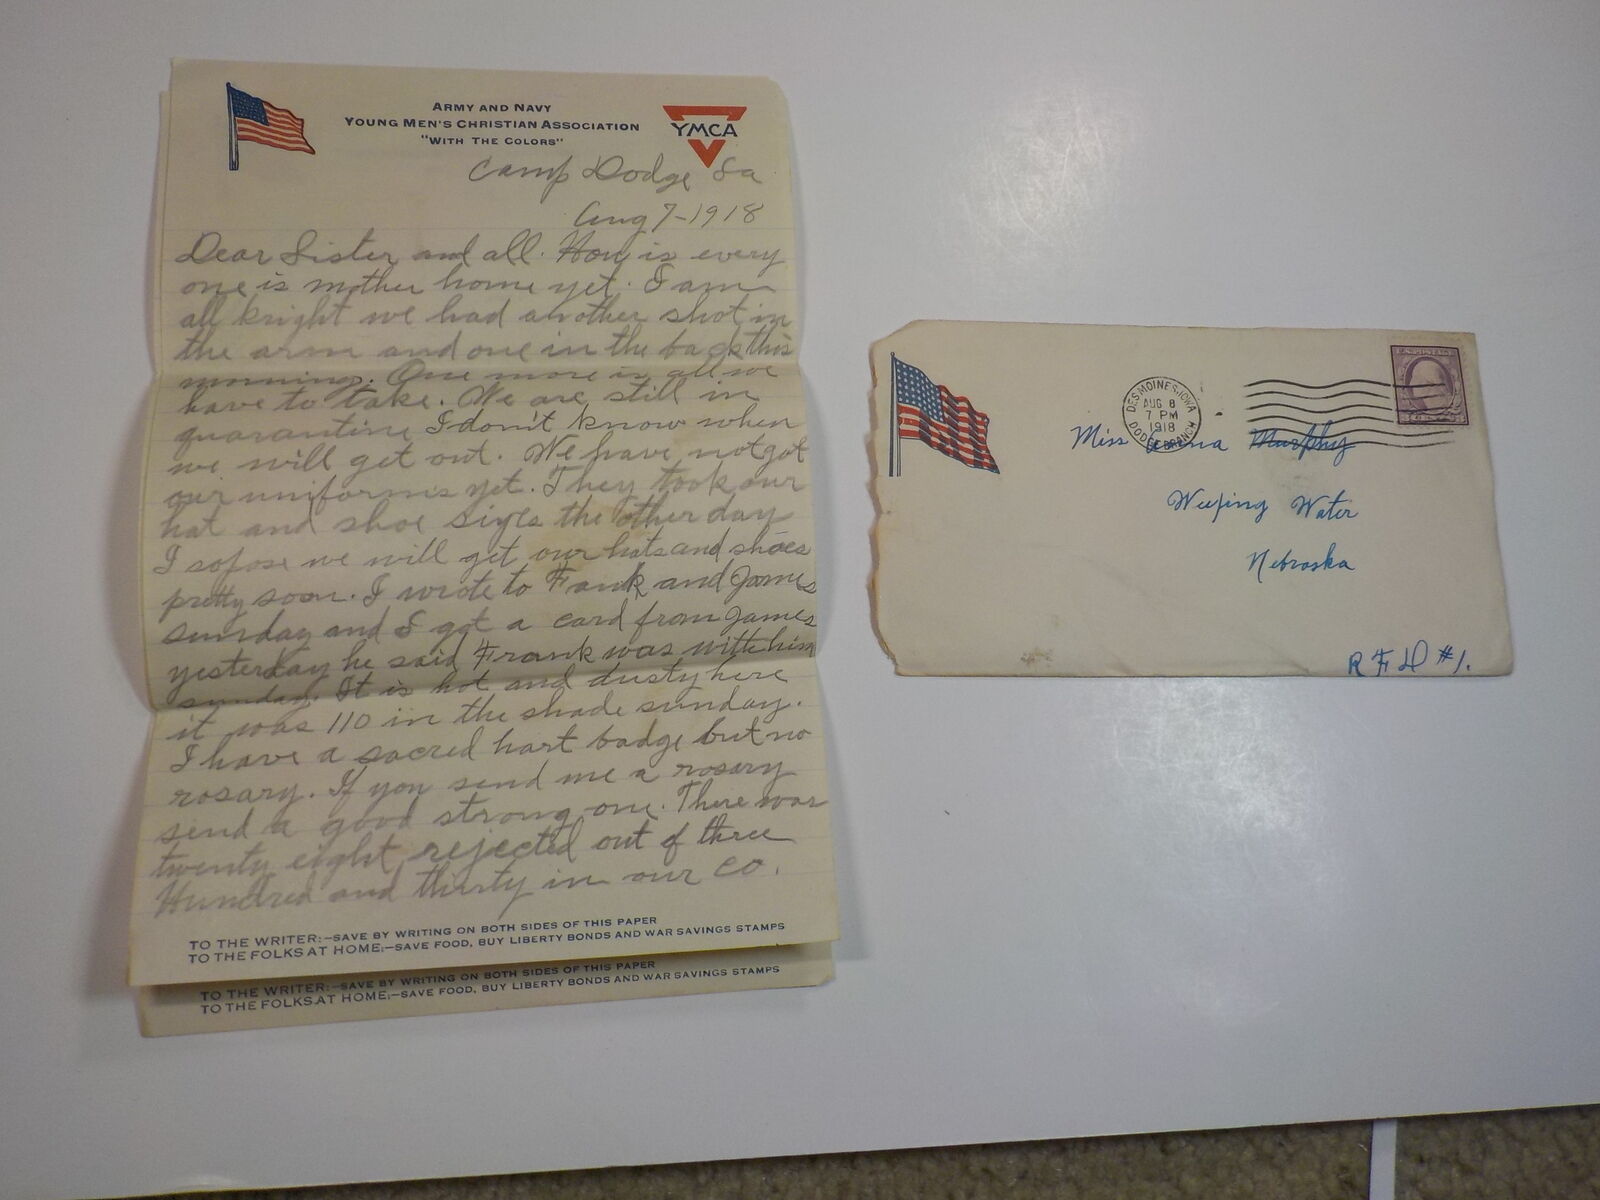 ARMY AND NAVY
YOUNG MEN'S CHRISTIAN ASSOCIATION
"WITH THE COLORS"
YMCA
Camp Dodge Ia
Aug 7-1918
Dear Sister and all. How is every
one is mother home yet. I am
all kright we had another shot in
the arm and one in the back this
morning. One more is all we
have to take. We are still in
quarantine I don't know when
we will get out. We have not got
our uniforms yet. They took our
hat and shoe sizes the other day
I sopose we will get our hats and shoes
pretty soon. I wrote to Frank and James
sunday and I got a card from James
yesterday he said Frank was with him
sunday. It is hot and dusty here
it was 110 in the shade sunday.
I have a sacred hart badge but no
rosary. If you send me a rosary
send a good strong one. There was
twenty eight rejected out of three
Hundred and thirty in our co.
TO THE WRITER:-SAVE BY WRITING ON BOTH SIDES OF THIS PAPER
TO THE FOLKS AT HOME:-SAVE FOOD, BUY LIBERTY BONDS AND WAR SAVINGS STAMPS
TO THE WRITER:-SAVE BY WRITING ON BOTH SIDES OF THIS PAPER
TO THE FOLKS AT HOME:-SAVE FOOD, BUY LIBERTY BONDS AND WAR SAVINGS STAMPS
DES MOINES, IOWA
AUG 8
7 PM
1918
DODGE BRANCH
U.S. POSTAGE
Miss Murphy
Weeping Water
Nebraska
R F D #1.